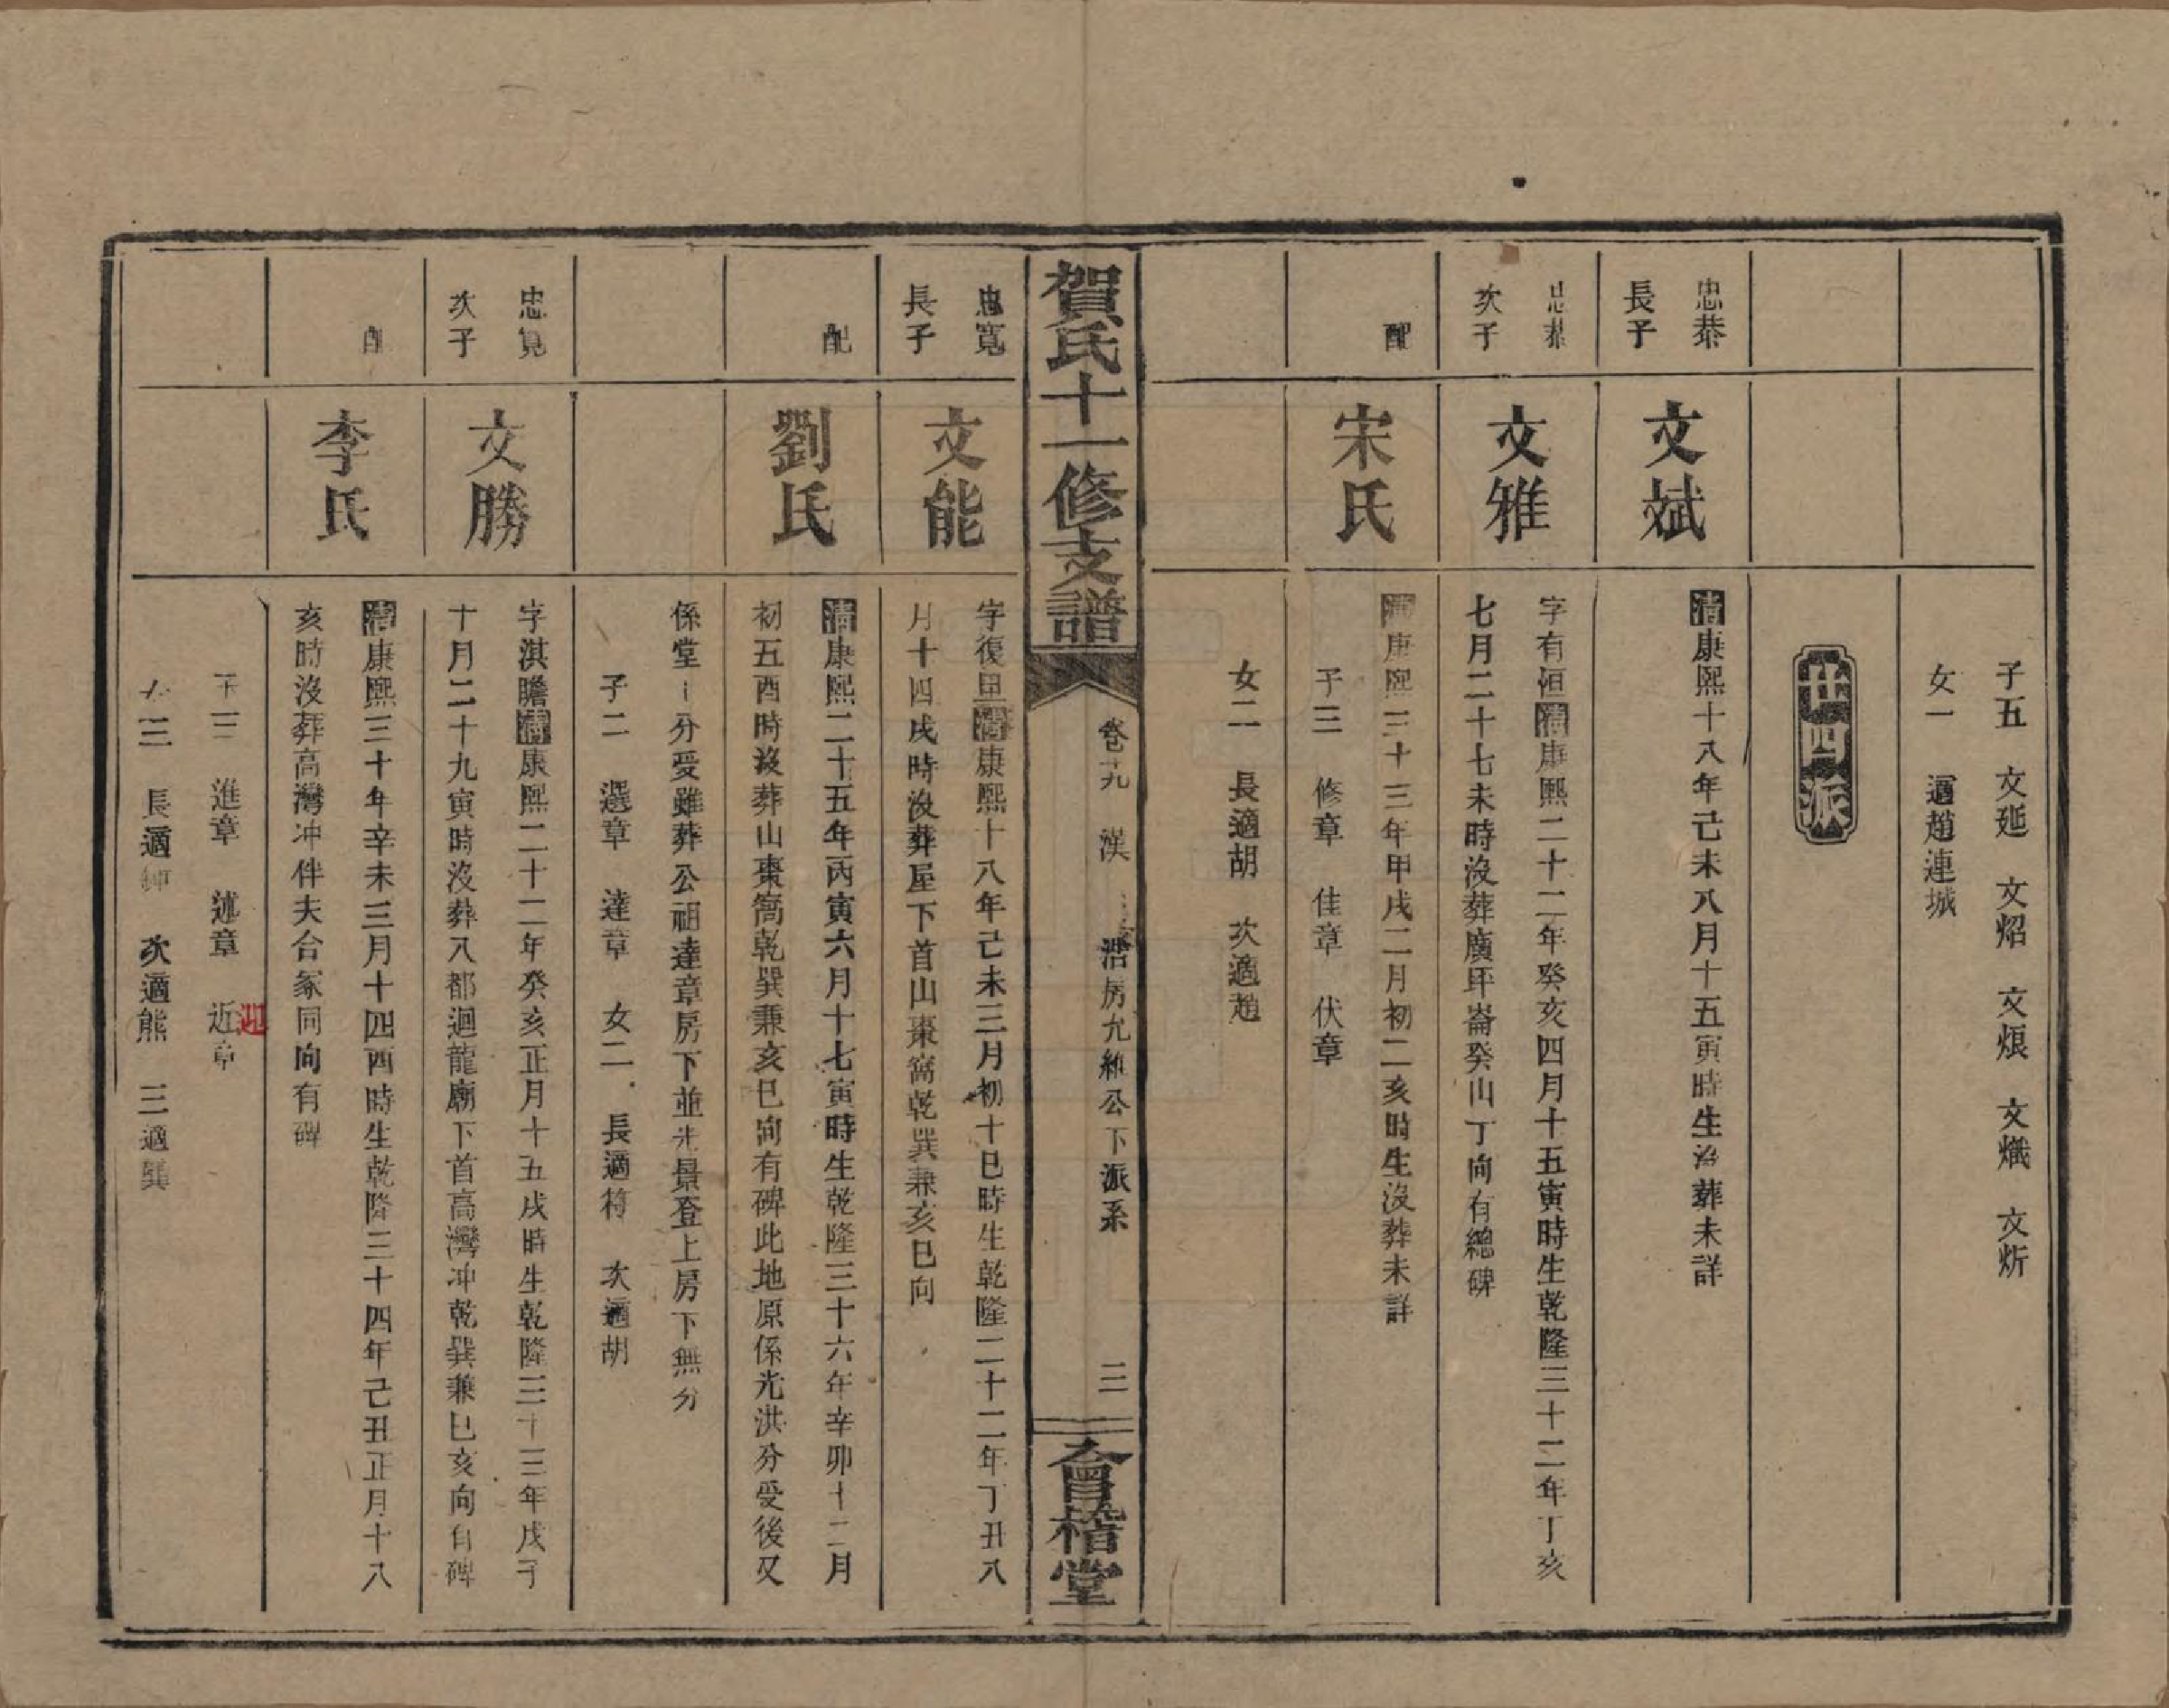 子五　文延　文炤　文烺　文熾　文炘
女一　適趙連城
廿四派
忠恭
長子
文斌
清康熙十八年己未八月十五寅時生沒葬未詳
忠恭
次子
文雅
字有恒清康熙二十二年癸亥四月十五寅時生乾隆三十二年丁亥
七月二十七未時沒葬廣坪崙癸山丁向有總碑
配
宋氏
清康熙三十三年甲戌二月初二亥時生沒葬未詳
子三　修章　佳章　伏章
女二　長適胡　次適趙
賀氏十一修支譜
卷九　漢　浩房九維公下派系
三
會稽堂
忠寬
長子
文能
字復里清康熙十八年己未三月初十巳時生乾隆二十二年丁丑八
月十四戌時沒葬屋下首山棗窩乾巽兼亥巳向
配
劉氏
清康熙二十五年丙寅六月十七寅時生乾隆三十六年辛卯十二月
初五酉時沒葬山棗窩乾巽兼亥巳向有碑此地原係光洪分受後又
係堂分受雖葬公祖達章房下並光景登上房下無分
子二　選章　達章　女二　長適符　次適胡
忠寬
次子
文勝
字淇瞻清康熙二十二年癸亥正月十五戌時生乾隆三十三年戊子
十月二十九寅時沒葬八都迴龍廟下首高灣冲乾巽兼巳亥向有碑
配
李氏
清康熙三十年辛未三月十四酉時生乾隆三十四年己丑正月十八
亥時沒葬高灣冲伴夫合冢同向有碑
子三　進章　述章　近章
迎
女三　長適鍾　次適熊　三適龔